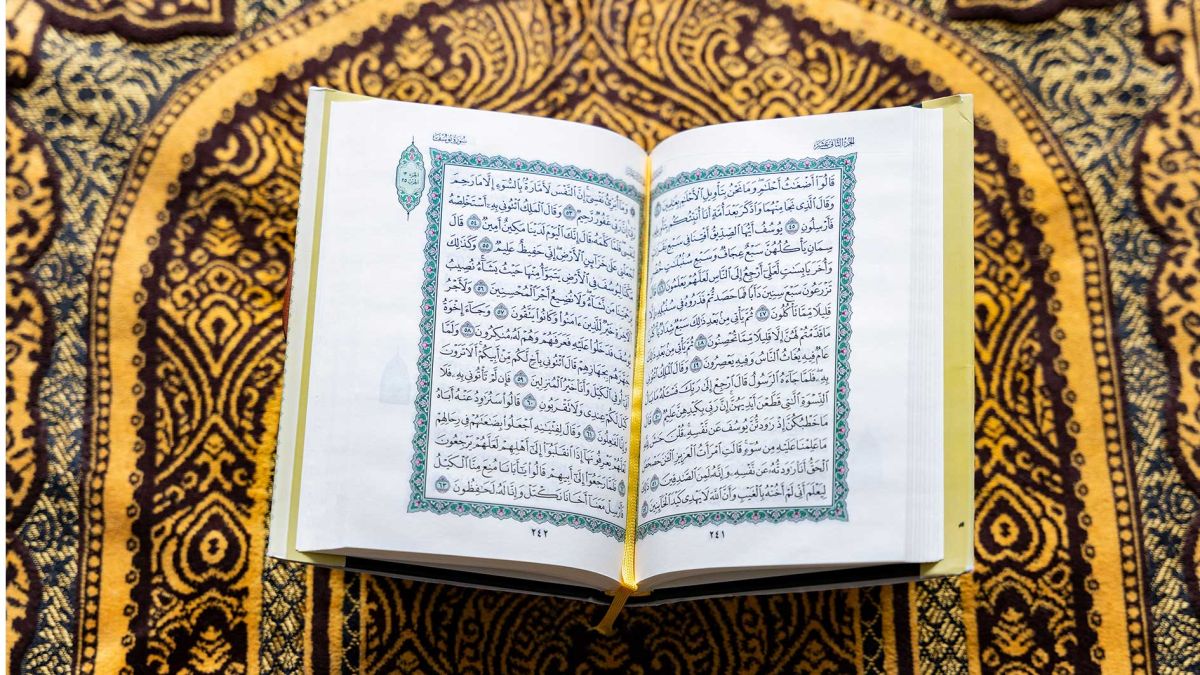 الجزء الثاني عشر
قَالُوٓاْ أَضۡغَٰثُ أَحۡلَٰمٖۖ وَمَا نَحۡنُ بِتَأۡوِيلِ ٱلۡأَحۡلَٰمِ بِعَٰلِمِينَ
وَقَالَ ٱلَّذِي نَجَا مِنۡهُمَا وَٱدَّكَرَ بَعۡدَ أُمَّةٍ أَنَا۠ أُنَبِّئُكُم
فَأَرۡسِلُونِ ٤٥ يُوسُفُ أَيُّهَا ٱلصِّدِّيقُ أَفۡتِنَا فِي سَبۡعِ
سِمَانٖ يَأۡكُلُهُنَّ سَبۡعٌ عِجَافٞ وَسَبۡعِ سُنۢبُلَٰتٍ خُضۡرٖ
وَأُخَرَ يَابِسَٰتٖ لَّعَلِّيٓ أَرۡجِعُ إِلَى ٱلنَّاسِ لَعَلَّهُمۡ يَعۡلَمُونَ
تَزۡرَعُونَ سَبۡعَ سِنِينَ دَأَبٗا فَمَا حَصَدتُّمۡ فَذَرُوهُ فِي سُنۢبُلِهِۦٓ
قَلِيلٗا مِّمَّا تَأۡكُلُونَ ٤٧ ثُمَّ يَأۡتِي مِنۢ بَعۡدِ ذَٰلِكَ سَبۡعٞ شِدَادٞ
مَا قَدَّمۡتُمۡ لَهُنَّ إِلَّا قَلِيلٗا مِّمَّا تُحۡصِنُونَ ٤٨ ثُمَّ يَأۡتِي مِنۢ بَعۡدِ
عَامٞ فِيهِ يُغَاثُ ٱلنَّاسُ وَفِيهِ يَعۡصِرُونَ ٤٩ وَقَالَ ٱلۡمَلِكُ ٱئۡتُونِي
بِهِۦۖ فَلَمَّا جَآءَهُ ٱلرَّسُولُ قَالَ ٱرۡجِعۡ إِلَىٰ رَبِّكَ فَسۡـَٔلۡهُ مَا بَالُ
ٱلنِّسۡوَةِ ٱلَّٰتِي قَطَّعۡنَ أَيۡدِيَهُنَّۚ إِنَّ رَبِّي بِكَيۡدِهِنَّ عَلِيمٞ ٥٠ قَالَ
مَا خَطۡبُكُنَّ إِذۡ رَٰوَدتُّنَّ يُوسُفَ عَن نَّفۡسِهِۦۚ قُلۡنَ حَٰشَ لِلَّهِ
مَا عَلِمۡنَا عَلَيۡهِ مِن سُوٓءٖۚ قَالَتِ ٱمۡرَأَتُ ٱلۡعَزِيزِ ٱلۡـَٰٔنَ حَصۡحَصَ
ٱلۡحَقُّ أَنَا۠ رَٰوَدتُّهُۥ عَن نَّفۡسِهِۦ وَإِنَّهُۥ لَمِنَ ٱلصَّٰدِقِينَ ٥١
لِيَعۡلَمَ أَنِّي لَمۡ أَخُنۡهُ بِٱلۡغَيۡبِ وَأَنَّ ٱللَّهَ لَا يَهۡدِي كَيۡدَ ٱلۡخَآئِنِينَ ٥٢
٢٤١
سورة يوسف
وَمَآ أُبَرِّئُ نَفۡسِيٓۚ إِنَّ ٱلنَّفۡسَ لَأَمَّارَةُۢ بِٱلسُّوٓءِ إِلَّا مَا رَحِمَ
رَبِّيٓۚ إِنَّ رَبِّي غَفُورٞ رَّحِيمٞ ٥٣ وَقَالَ ٱلۡمَلِكُ ٱئۡتُونِي بِهِۦٓ أَسۡتَخۡلِصۡهُ
لِنَفۡسِيۖ فَلَمَّا كَلَّمَهُۥ قَالَ إِنَّكَ ٱلۡيَوۡمَ لَدَيۡنَا مَكِينٌ أَمِينٞ ٥٤ قَالَ
ٱجۡعَلۡنِي عَلَىٰ خَزَآئِنِ ٱلۡأَرۡضِۖ إِنِّي حَفِيظٌ عَلِيمٞ ٥٥ وَكَذَٰلِكَ
مَكَّنَّا لِيُوسُفَ فِي ٱلۡأَرۡضِ يَتَبَوَّأُ مِنۡهَا حَيۡثُ يَشَآءُۚ نُصِيبُ
بِرَحۡمَتِنَا مَن نَّشَآءُۖ وَلَا نُضِيعُ أَجۡرَ ٱلۡمُحۡسِنِينَ ٥٦ وَلَأَجۡرُ
ٱلۡأٓخِرَةِ خَيۡرٞ لِّلَّذِينَ ءَامَنُواْ وَكَانُواْ يَتَّقُونَ ٥٧ وَجَآءَ إِخۡوَةُ
يُوسُفَ فَدَخَلُواْ عَلَيۡهِ فَعَرَفَهُمۡ وَهُمۡ لَهُۥ مُنكِرُونَ ٥٨ وَلَمَّا
جَهَّزَهُم بِجَهَازِهِمۡ قَالَ ٱئۡتُونِي بِأَخٖ لَّكُم مِّنۡ أَبِيكُمۡۚ أَلَا تَرَوۡنَ
أَنِّيٓ أُوفِي ٱلۡكَيۡلَ وَأَنَا۠ خَيۡرُ ٱلۡمُنزِلِينَ ٥٩ فَإِن لَّمۡ تَأۡتُونِي بِهِۦ فَلَا
كَيۡلَ لَكُمۡ عِندِي وَلَا تَقۡرَبُونِ ٦٠ قَالُواْ سَنُرَٰوِدُ عَنۡهُ أَبَاهُ
وَإِنَّا لَفَٰعِلُونَ ٦١ وَقَالَ لِفِتۡيَٰنِهِ ٱجۡعَلُواْ بِضَٰعَتَهُمۡ فِي رِحَالِهِمۡ
لَعَلَّهُمۡ يَعۡرِفُونَهَآ إِذَا ٱنقَلَبُوٓاْ إِلَىٰٓ أَهۡلِهِمۡ لَعَلَّهُمۡ يَرۡجِعُونَ
٦٢ فَلَمَّا رَجَعُوٓاْ إِلَىٰٓ أَبِيهِمۡ قَالُواْ يَٰٓأَبَانَا مُنِعَ مِنَّا ٱلۡكَيۡلُ
فَأَرۡسِلۡ مَعَنَآ أَخَانَا نَكۡتَلۡ وَإِنَّا لَهُۥ لَحَٰفِظُونَ ٦٣
٢٤٢